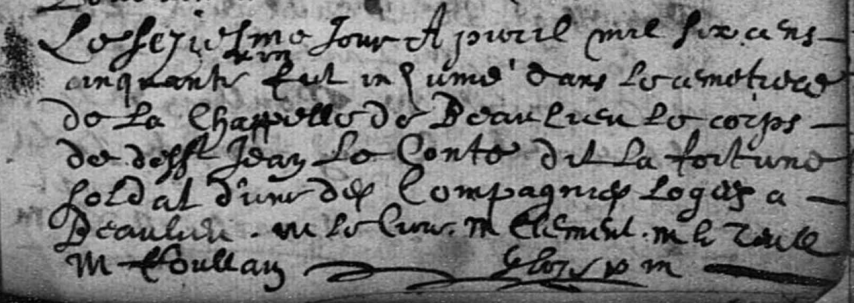 Le seziesme Jour d'Apvril mil six cens
cinquante fut inhumé dans le cimetiere
de la Chappelle de Beaulieu le corps
de deff^t Jean Le Conte dit la fortune
soldat d'une des Compagnies logés a
Beaulieu. m le Cure. m Clement. m le
M